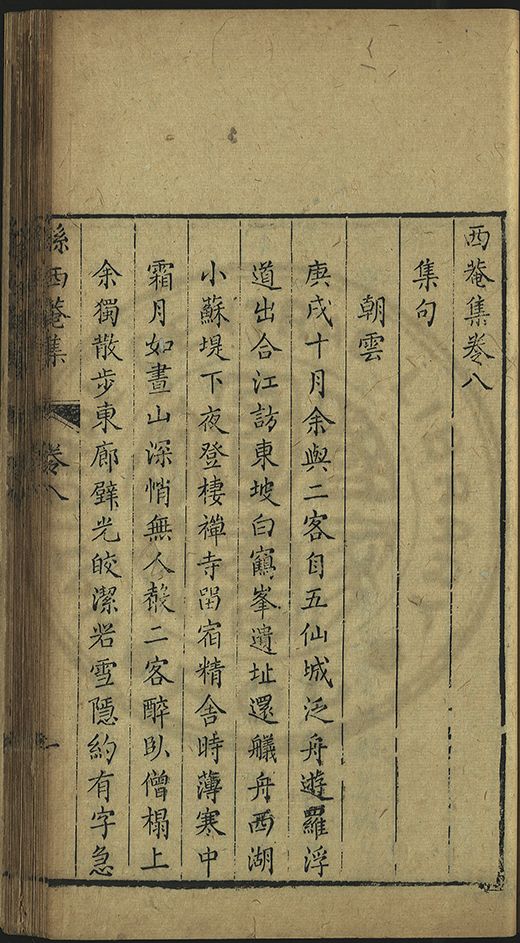 西菴集卷八
集句
朝雲
庚戌十月余與二客自五仙城泛舟遊羅浮
道出合江訪東坡白鶴峯遺址還艤舟西湖
小蘇堤下夜登棲禪寺畱宿精舍時薄寒中
霜月如晝山深悄無人聲二客醉臥僧榻上
余獨散步東廊壁光皎潔若雪隱約有字急
孫西菴集 卷八 一